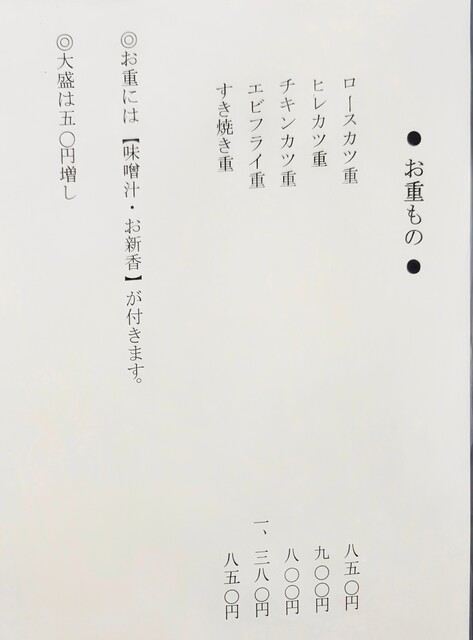 ●お重もの●
ロースカツ重 八五〇円
ヒレカツ重 九〇〇円
チキンカツ重 八〇〇円
エビフライ重 一、三八〇円
すき焼き重 八五〇円
◎お重には【味噌汁・お新香】が付きます。
◎大盛は五〇円増し